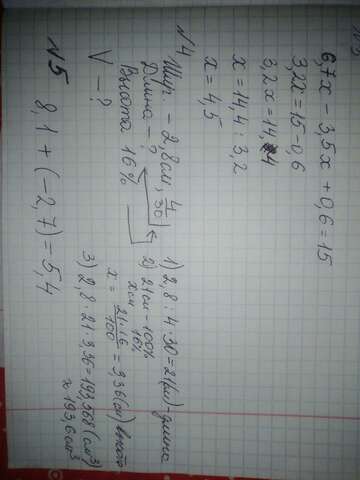 6,7x - 3,5x + 0,6 = 15
3,2x = 15 - 0,6
3,2x = 14,4
x = 14,4 : 3,2
x = 4,5
№4
Шир. - 2,8 см, 4/30
Длина - ?
Высота 16%
V - ?
1) 2,8 : 4 · 30 = 21 (см) - длина
2) 21 см - 100%
x см 16%
x = 21·16/100 = 3,36 (см) высота
3) 2,8 · 21 · 3,36 = 193,568 (см³)
≈ 193,6 см³
№5
8,1 + (-2,7) = 5,4